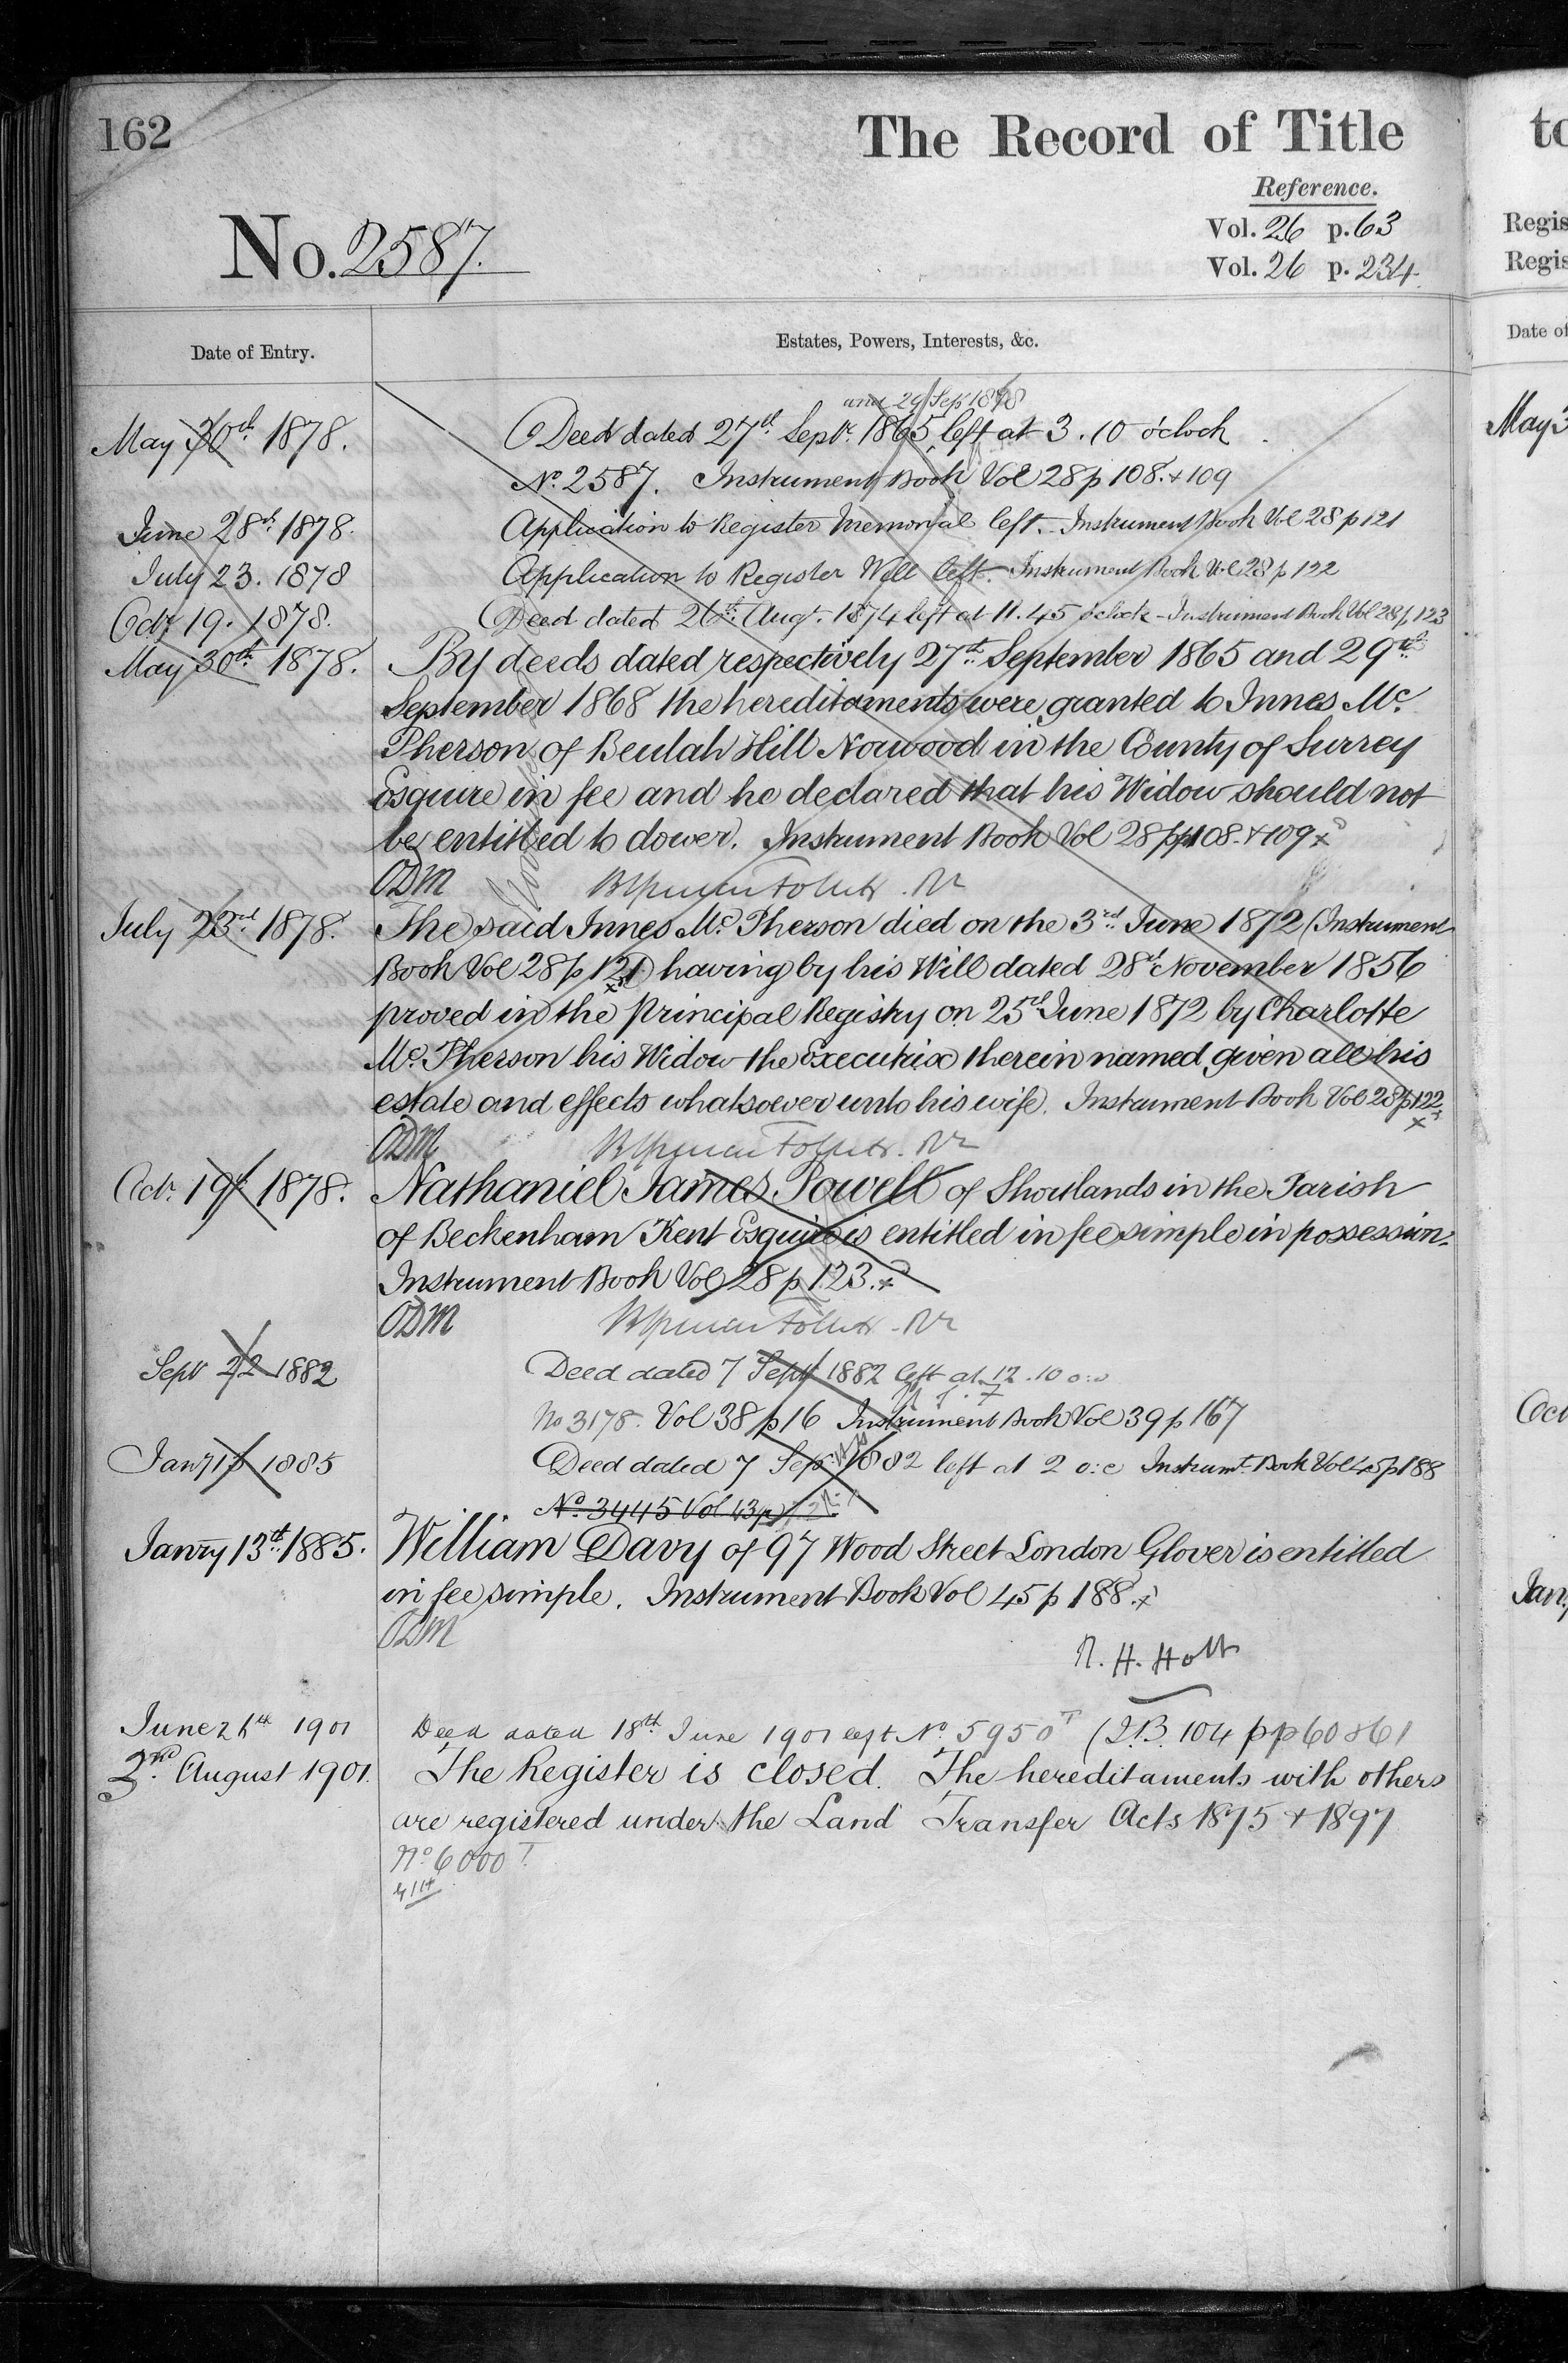 162
The Record of Title
to
Reference.
Vol. 26 p. 63
Vol. 26 p. 234
Regis
Regis
No. 2587.
Date of Entry.
Estates, Powers, Interests, &c.
Date of
and 29 Sep 1878
May 30th 1878.
Deed dated 27th Septr. 1865 left at 3.10 o'clock
May 3
No. 2587. Instrument Book Vol 28 p 108. + 109
June 28th 1878.
Application to Register Memorial left. Instrument Book Vol 28 p 121
July 23. 1878
Application to Register Will left. Instrument Book Vol 28 p 122
Octr 19. 1878.
Deed dated 26th Augt. 1874 left at 11.45 o'clock - Instrument Book Vol 28 p 123
May 30th 1878.
By deeds dated respectively 27th September 1865 and 29th
September 1868 the hereditaments were granted to Innes Mc.
Pherson of Beulah Hill Norwood in the County of Surrey
Esquire in fee and he declared that his Widow should not
be entitled to dower. Instrument Book Vol 28 pp 108. + 109 x
ODM
July 23rd 1878.
The said Innes Mc. Pherson died on the 3rd June 1872 (Instrument
Book Vol 28 p 121) having by his Will dated 28th November 1856
proved in the Principal Registry on 25th June 1872 by Charlotte
Mc. Pherson his Widow the Executrix therein named given all his
estate and effects whatsoever unto his wife. Instrument Book Vol 28 p 122
ODM
Octr. 19th 1878.
Nathaniel James Powell of Shortlands in the Parish
of Beckenham Kent Esquire is entitled in fee simple in possession.
Instrument Book Vol 28 p 123. x
ODM
Sept 22 1882
Deed dated 7 Sept 1882 left at 12.10 o:c
Oct
No 3178. Vol 38 p 16 Instrument Book Vol 39 p 167
Jany 13 1885
Deed dated 7 Sep. 1882 left at 2 o:c Instrumt. Book Vol 45 p 188
No. 3445 Vol 43 p
Janry 13th. 1885.
William Davy of 97 Wood Street London Glover is entitled
Jan
in fee simple. Instrument Book Vol 45 p 188. x
ODM
R. H. Holt
June 26th 1901
Deed dated 18th June 1901 left No. 5950T (I.B. 104 pp 60 & 61
3rd. August 1901.
The Register is closed. The hereditaments with others
are registered under the Land Transfer Acts 1875 + 1897
No. 6000T.